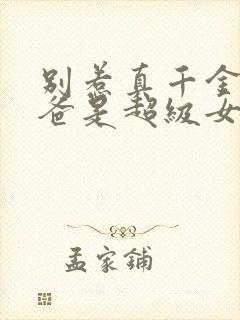 别惹真千金
爸是超级女
孟家铺